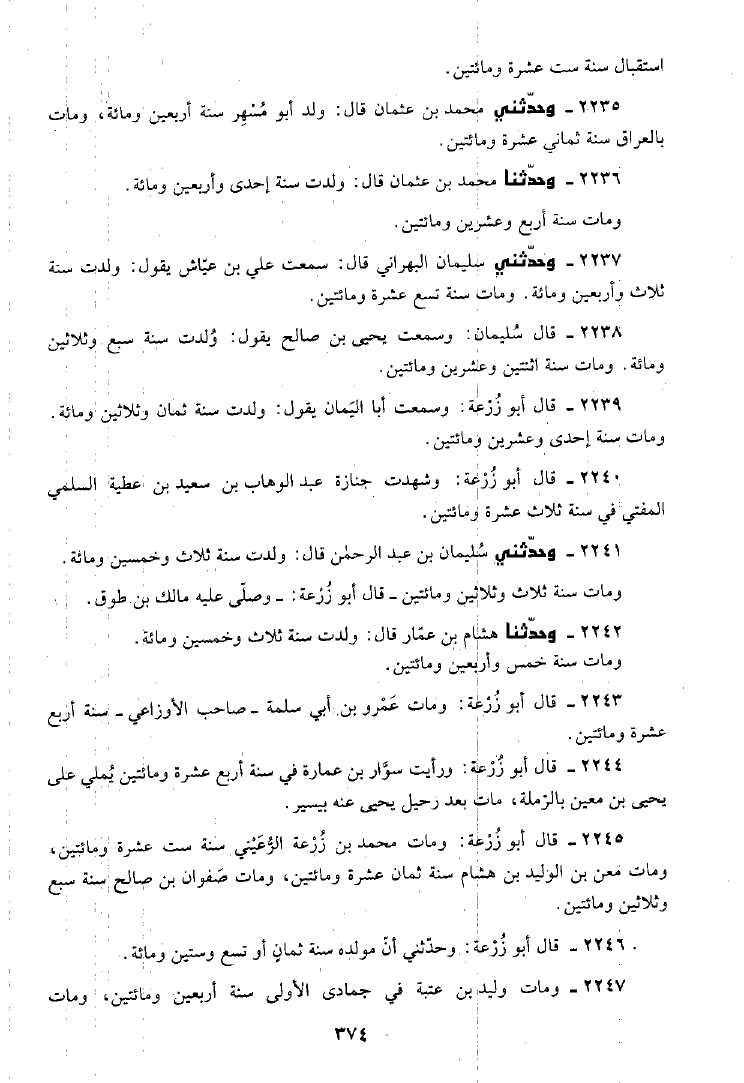 استقبال سنة ست عشرة ومائتين.
٢٢٣٥ ـ وحدّثني محمد بن عثمان قال: ولد أبو مُسْهِر سنة أربعين ومائة، ومات
بالعراق سنة ثماني عشرة ومائتين.
٢٢٣٦ ـ وحدّثنا محمد بن عثمان قال: ولدت سنة إحدى وأربعين ومائة.
ومات سنة أربع وعشرين ومائتين.
٢٢٣٧ ـ وحدّثني سليمان البهراني قال: سمعت علي بن عيّاش يقول: ولدت سنة
ثلاث وأربعين ومائة. ومات سنة تسع عشرة ومائتين.
٢٢٣٨ ـ قال سُليمان: وسمعت يحيى بن صالح يقول: وُلدت سنة سبع وثلاثين
ومائة. ومات سنة اثنتين وعشرين ومائتين.
٢٢٣٩ ـ قال أبو زُرْعة: وسمعت أبا اليَمان يقول: ولدت سنة ثمان وثلاثين ومائة.
ومات سنة إحدى وعشرين ومائتين.
٢٢٤٠ ـ قال أبو زُرْعة: وشهدت جنازة عبد الوهاب بن سعيد بن عطية السلمي
المفتي في سنة ثلاث عشرة ومائتين.
٢٢٤١ ـ وحدّثني سُليمان بن عبد الرحمٰن قال: ولدت سنة ثلاث وخمسين ومائة.
ومات سنة ثلاث وثلاثين ومائتين ـ قال أبو زُرْعة: ـ وصلّى عليه مالك بن طوق.
٢٢٤٢ ـ وحدّثنا هشام بن عمّار قال: ولدت سنة ثلاث وخمسين ومائة.
ومات سنة خمس وأربعين ومائتين.
٢٢٤٣ ـ قال أبو زُرْعة: ومات عَمْرو بن أبي سلمة ـ صاحب الأوزاعي ـ سنة أربع
عشرة ومائتين.
٢٢٤٤ ـ قال أبو زُرْعة: ورأيت سوّار بن عمارة في سنة أربع عشرة ومائتين يُملي على
يحيى بن معين بالرّملة، مات بعد رحيل يحيى عنه بيسير.
٢٢٤٥ ـ قال أبو زُرْعة: ومات محمد بن زُرْعة الرُّعَيْني سنة ست عشرة ومائتين،
ومات معن بن الوليد بن هشام سنة ثمان عشرة ومائتين، ومات صَفوان بن صالح سنة سبع
وثلاثين ومائتين.
٢٢٤٦ ـ قال أبو زُرْعة: وحدّثني أنّ مولده سنة ثمانٍ أو تسع وستين ومائة.
٢٢٤٧ ـ ومات وليد بن عتبة في جمادى الأولى سنة أربعين ومائتين، ومات
٣٧٤